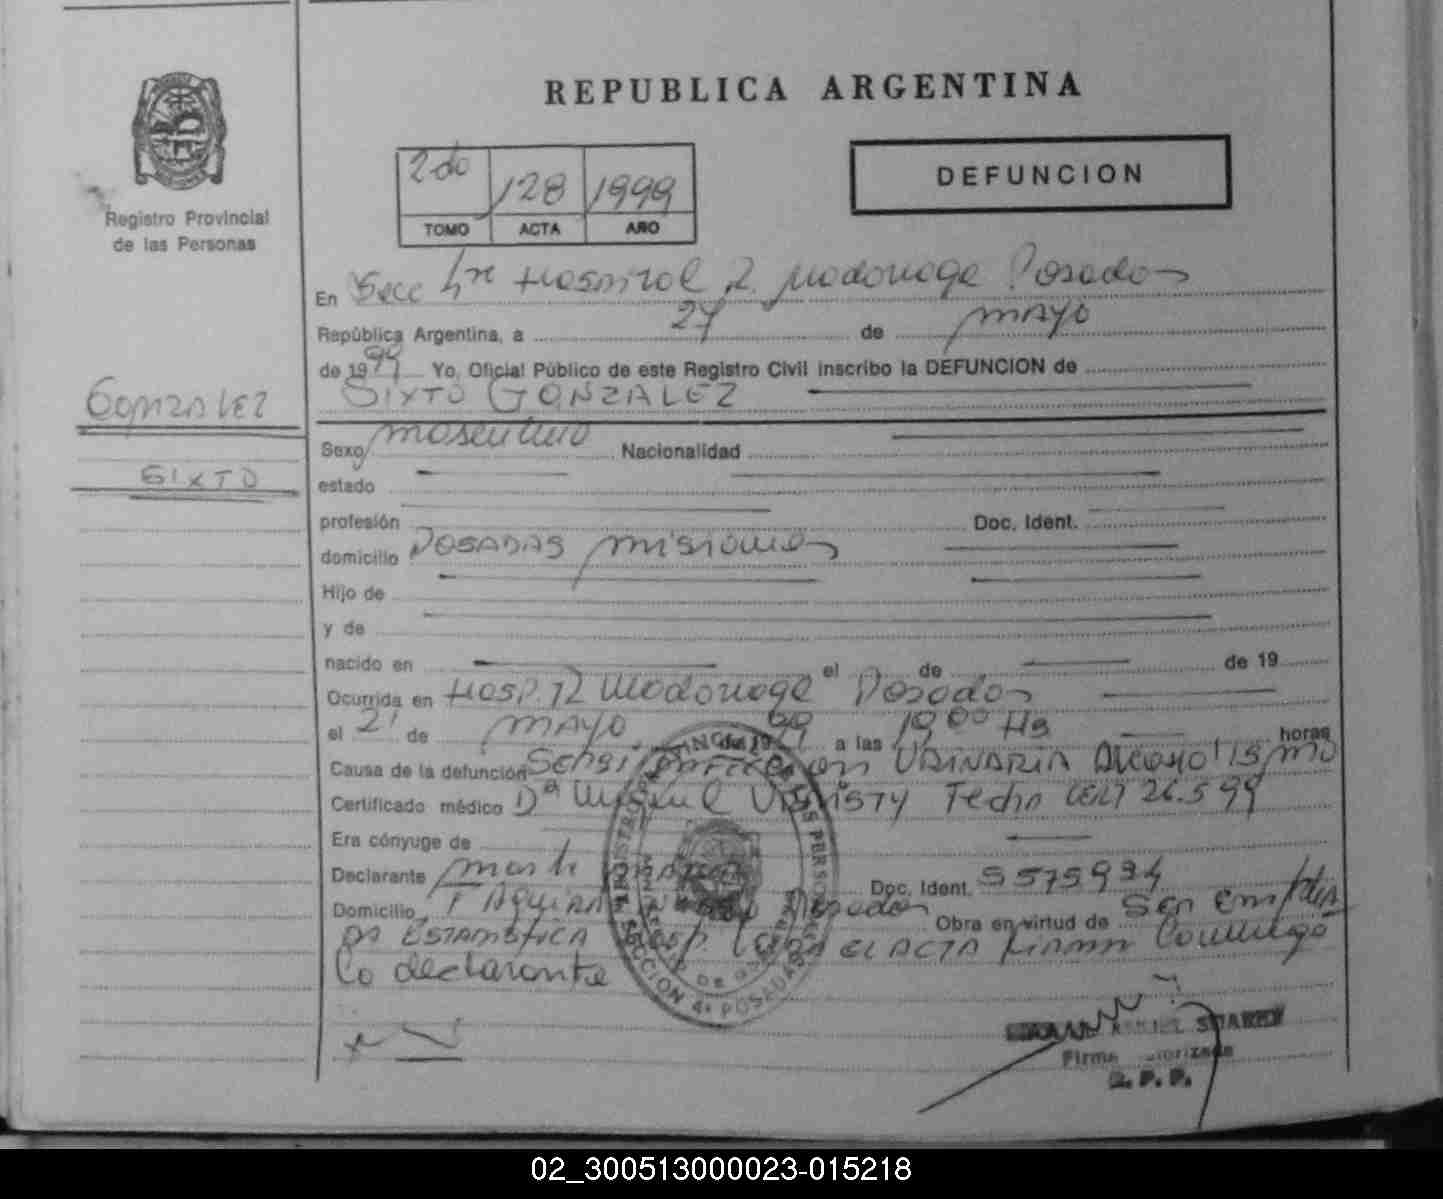 REPUBLICA ARGENTINA
Registro Provincial
de las Personas
2do 128 1999
TOMO ACTA AÑO
DEFUNCION
En Secc Hospital R. Madariaga Posadas
República Argentina, a 27 de mayo
de 1999 Yo, Oficial Público de este Registro Civil inscribo la DEFUNCION de
SIXTO GONZALEZ
GONZALEZ
SIXTO
Sexo masculino Nacionalidad
estado
profesión Doc. Ident.
domicilio POSADAS misiones
Hijo de
y de
nacido en el de de 19
Ocurrida en HOSP. R Madariaga Posadas
el de MAYO de 1999 a las 19 00 Hs horas
Causa de la defunción URINARIA Alcoholismo
Certificado médico Fecha 26.5.99
Era cónyuge de
Declarante Doc. Ident.
Domicilio Posadas Obra en virtud de ser
ESTADISTICA Hosp. EL ACTA FIRMA Conmigo
La declarante
SECCION 4ª POSADAS
SUAREZ
Firma Autorizada
R. P. P.
02_300513000023-015218